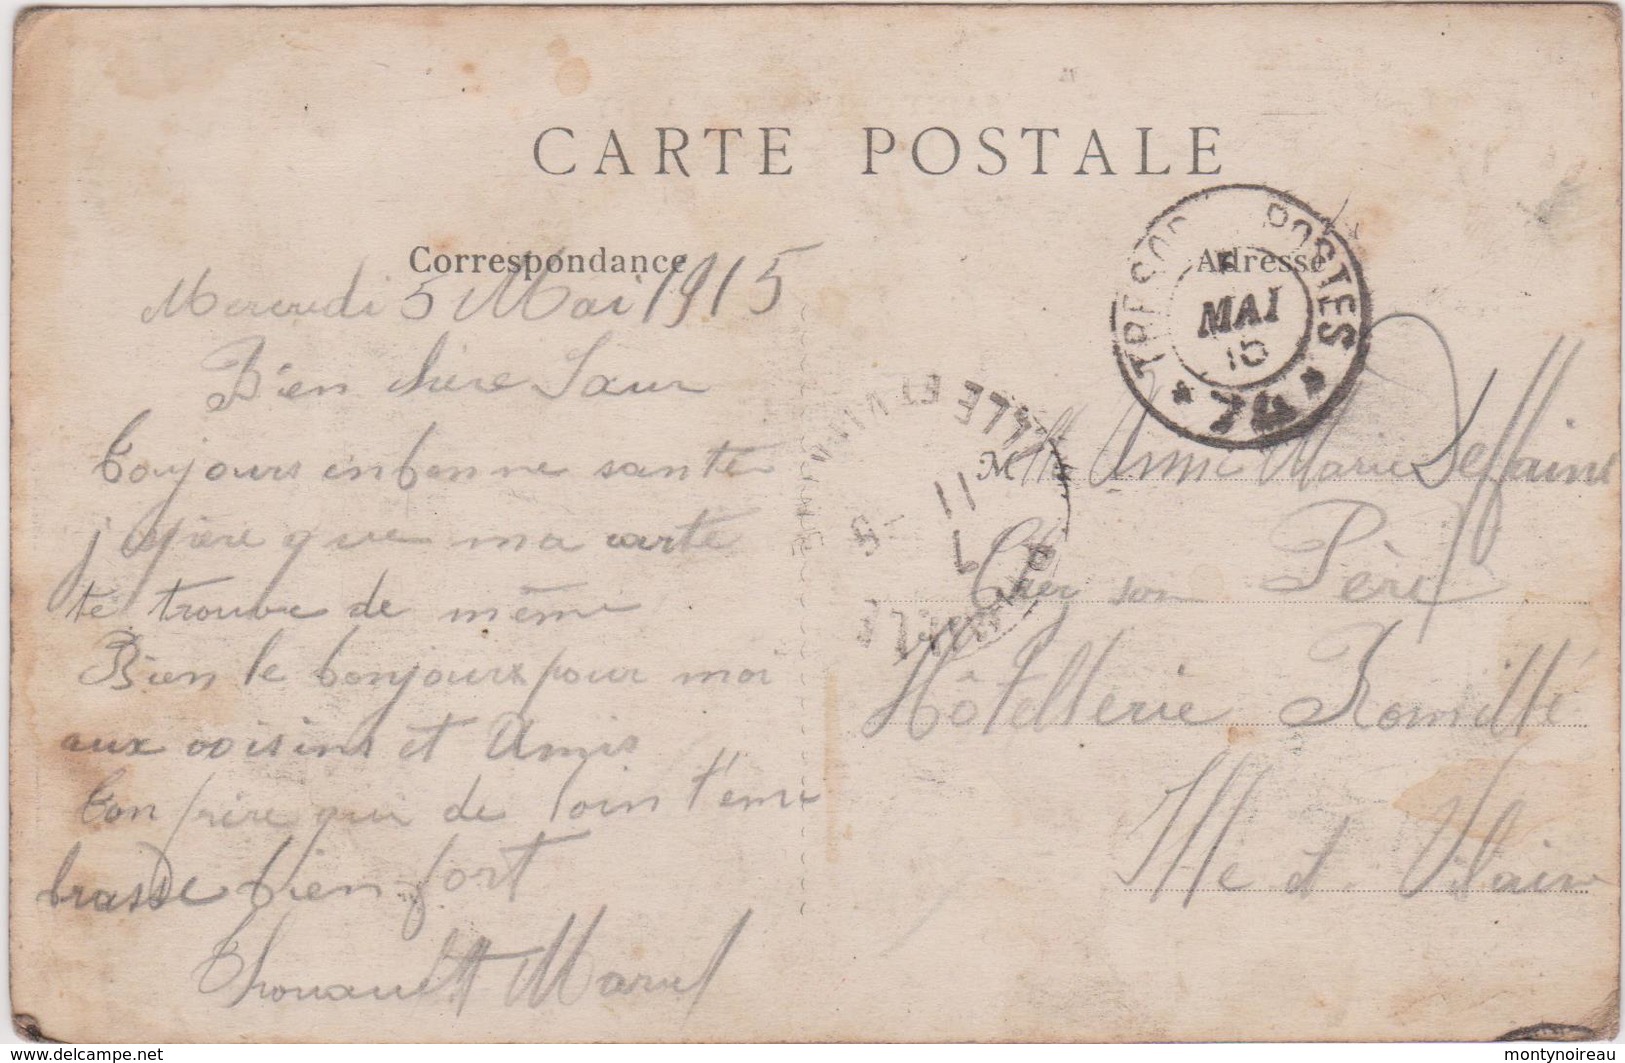 CARTE POSTALE
Correspondance
Mercredi 5 Mai 1915
Bien chère Sœur
Toujours en bonne santé
j'espère que ma carte
te trouve de même
Bien le bonjour pour moi
aux voisins et Amis
Ton frère qui de loin t'em
brasse bien fort
Marcel
Adresse
TRESOR POSTES
5
MAI
15
* 74 *
Mlle Anne Marie Deffaine
Chez son Père
Hôtellerie Romillé
Ille et Vilaine
www.delcampe.net
montynoireau